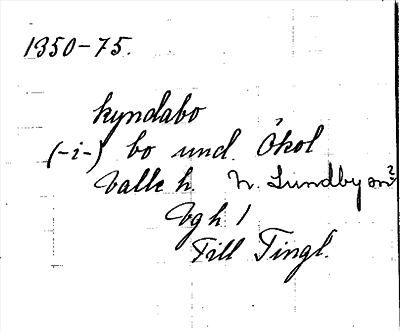 1350-75.
kyndabo
(-i-) bo und. Ökol
Valle h. N. Lundby sn²
Vgh 1
Till Tingl.